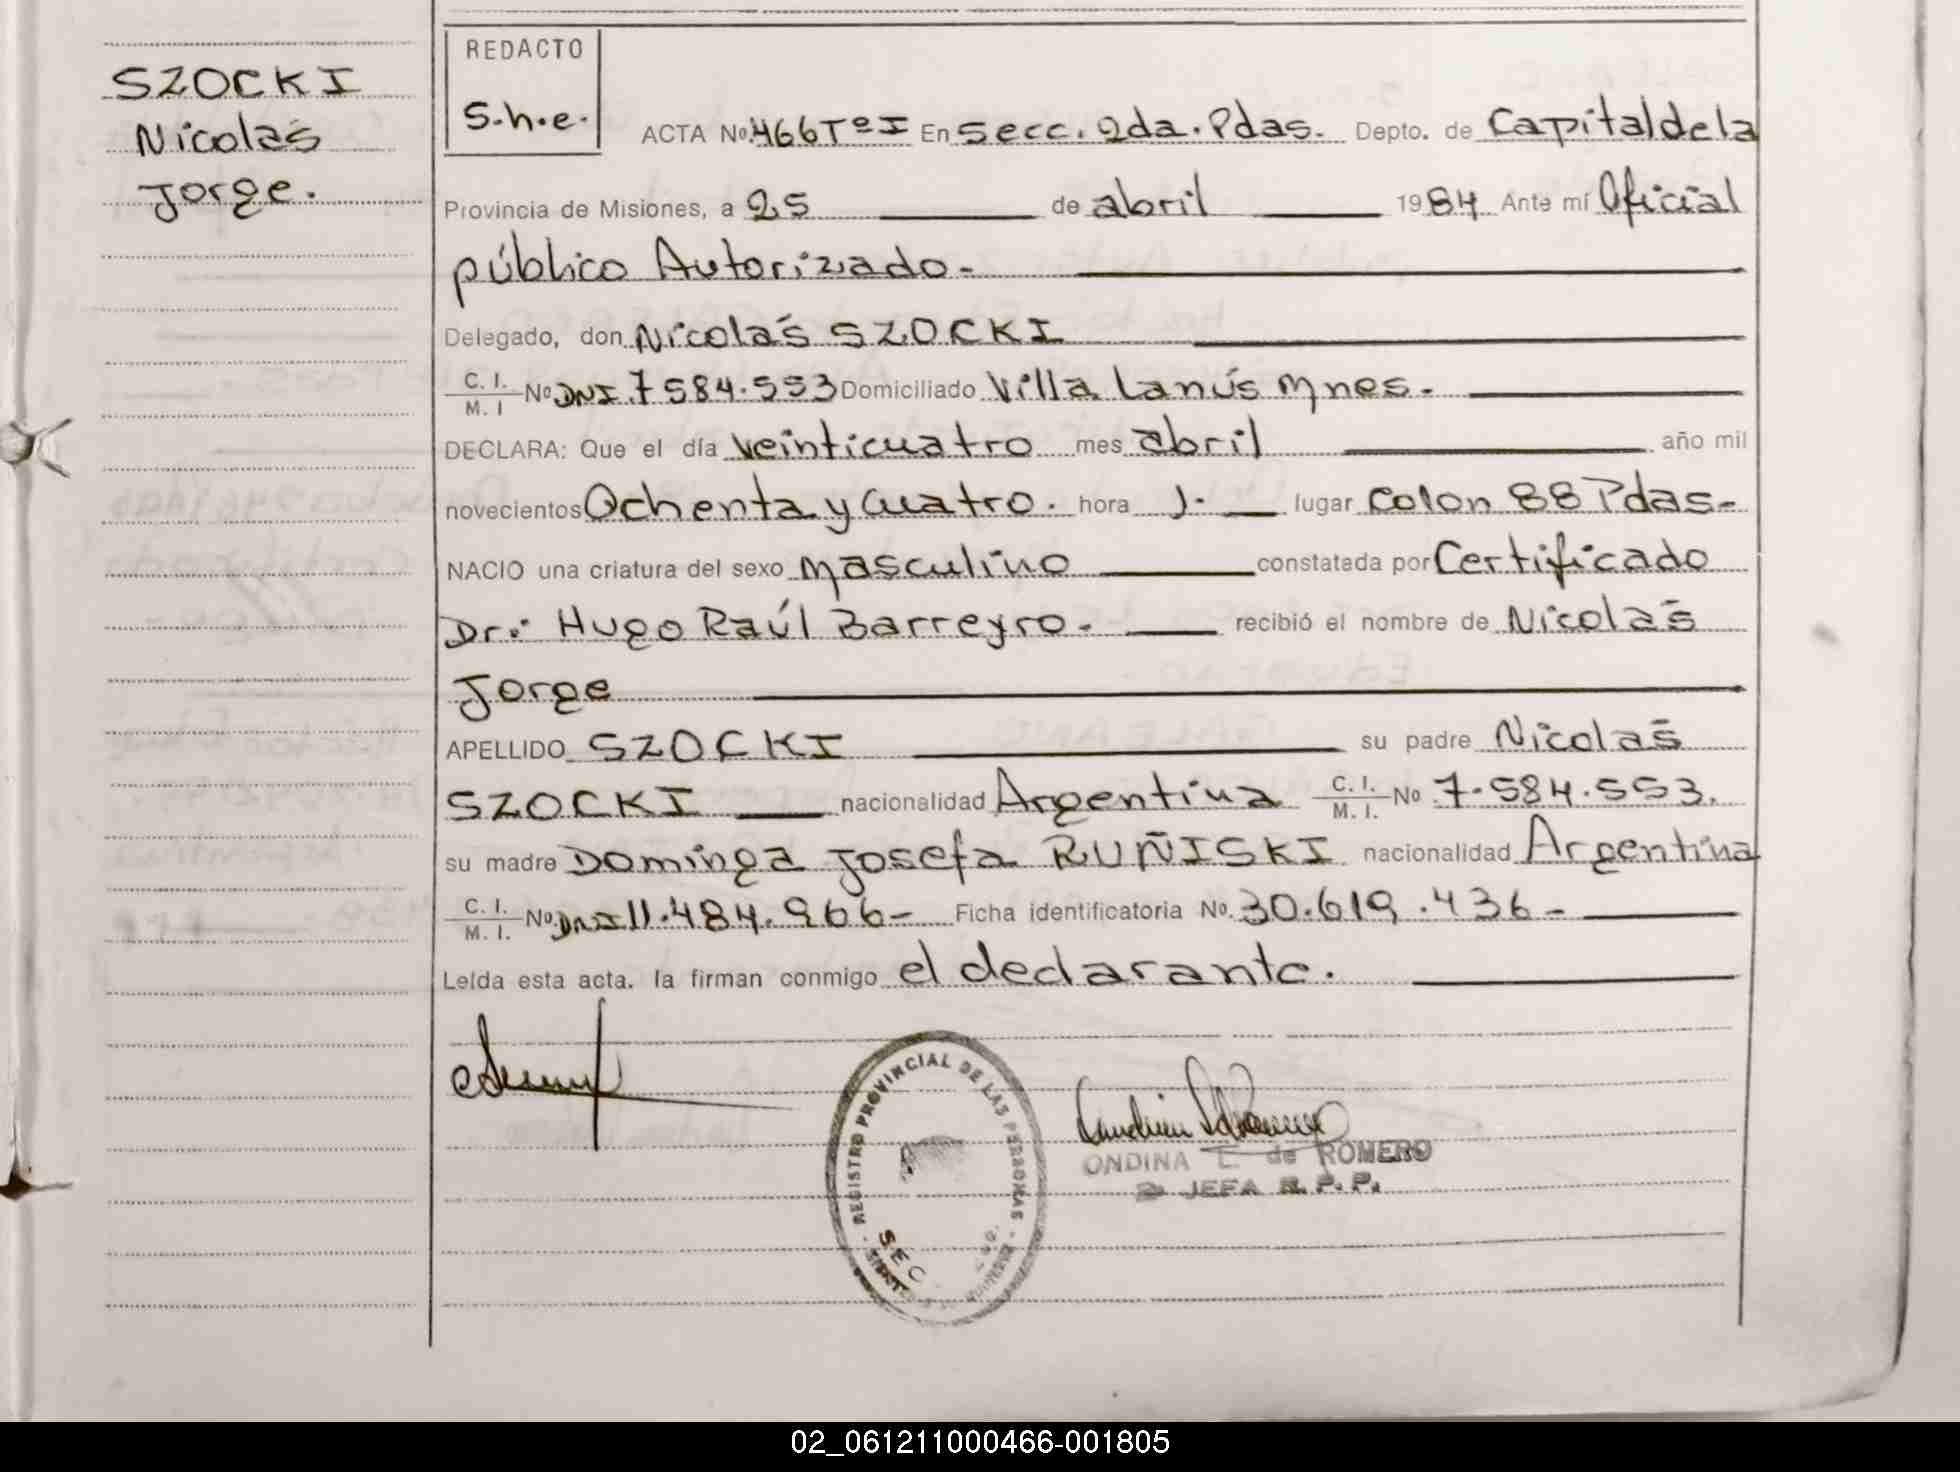 SZOCKI
Nicolás
Jorge.
REDACTO
S.h.e.
ACTA Nº 466 Tº I En Secc. 2da. Pdas. Depto. de Capital de la
Provincia de Misiones, a 25 de abril 1984 Ante mí Oficial
público Autorizado.
Delegado, don Nicolás SZOCKI
C. I. / M. I No DNI. 7584.553 Domiciliado Villa Lanús Mnes.
DECLARA: Que el día veinticuatro mes abril año mil
novecientos Ochenta y Cuatro. hora 1. lugar Colon 88 Pdas-
NACIO una criatura del sexo Masculino constatada por Certificado
Dr. Hugo Raúl Barreyro. recibió el nombre de Nicolás
Jorge
APELLIDO SZOCKI su padre Nicolás
SZOCKI nacionalidad Argentina C. I. / M. I. No 7.584.553.
su madre Dominga Josefa RUÑISKI nacionalidad Argentina
C. I. / M. I. No. DNI 11.484.966- Ficha identificatoria No. 30.619.436-
Leída esta acta. la firman conmigo el declarante.
REGISTRO PROVINCIAL DE LAS PERSONAS
SEC
ONDINA L. de ROMERO
JEFA R. P. P.
02_061211000466-001805